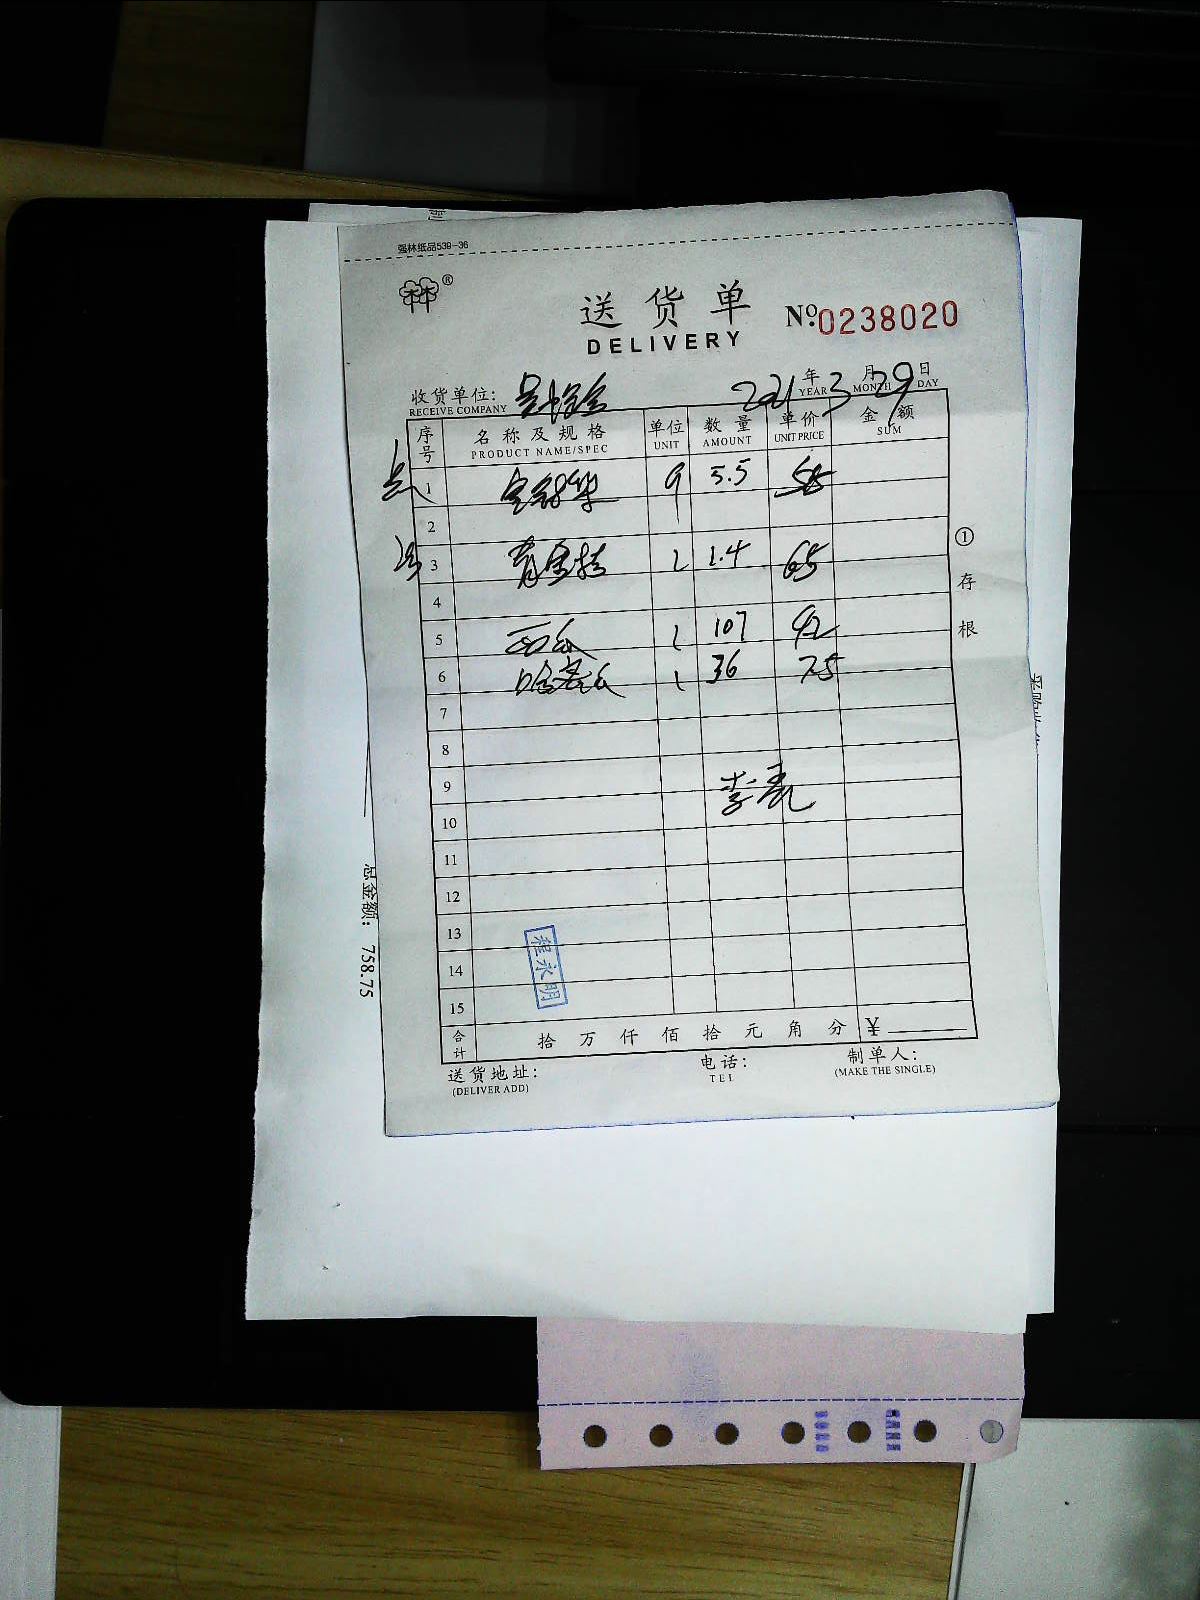 强林纸品539-36
林®
送货单
DELIVERY
Nº:0238020
收货单位:
RECEIVE COMPANY
2021年3月29日
YEAR MONTH DAY
序号 名称及规格 单位 数量 单价 金额
PRODUCT NAME/SPEC UNIT AMOUNT UNIT PRICE SUM
1 5.5
2
3 1.4 65
4
5 西瓜 107 42
6 哈密瓜 36 75
7
8
9
10
11
12
13
14
15
程永明
合计 拾 万 仟 佰 拾 元 角 分 ¥
送货地址: 电话: 制单人:
(DELIVER ADD) TEL (MAKE THE SINGLE)
①存根
总金额: 758.75